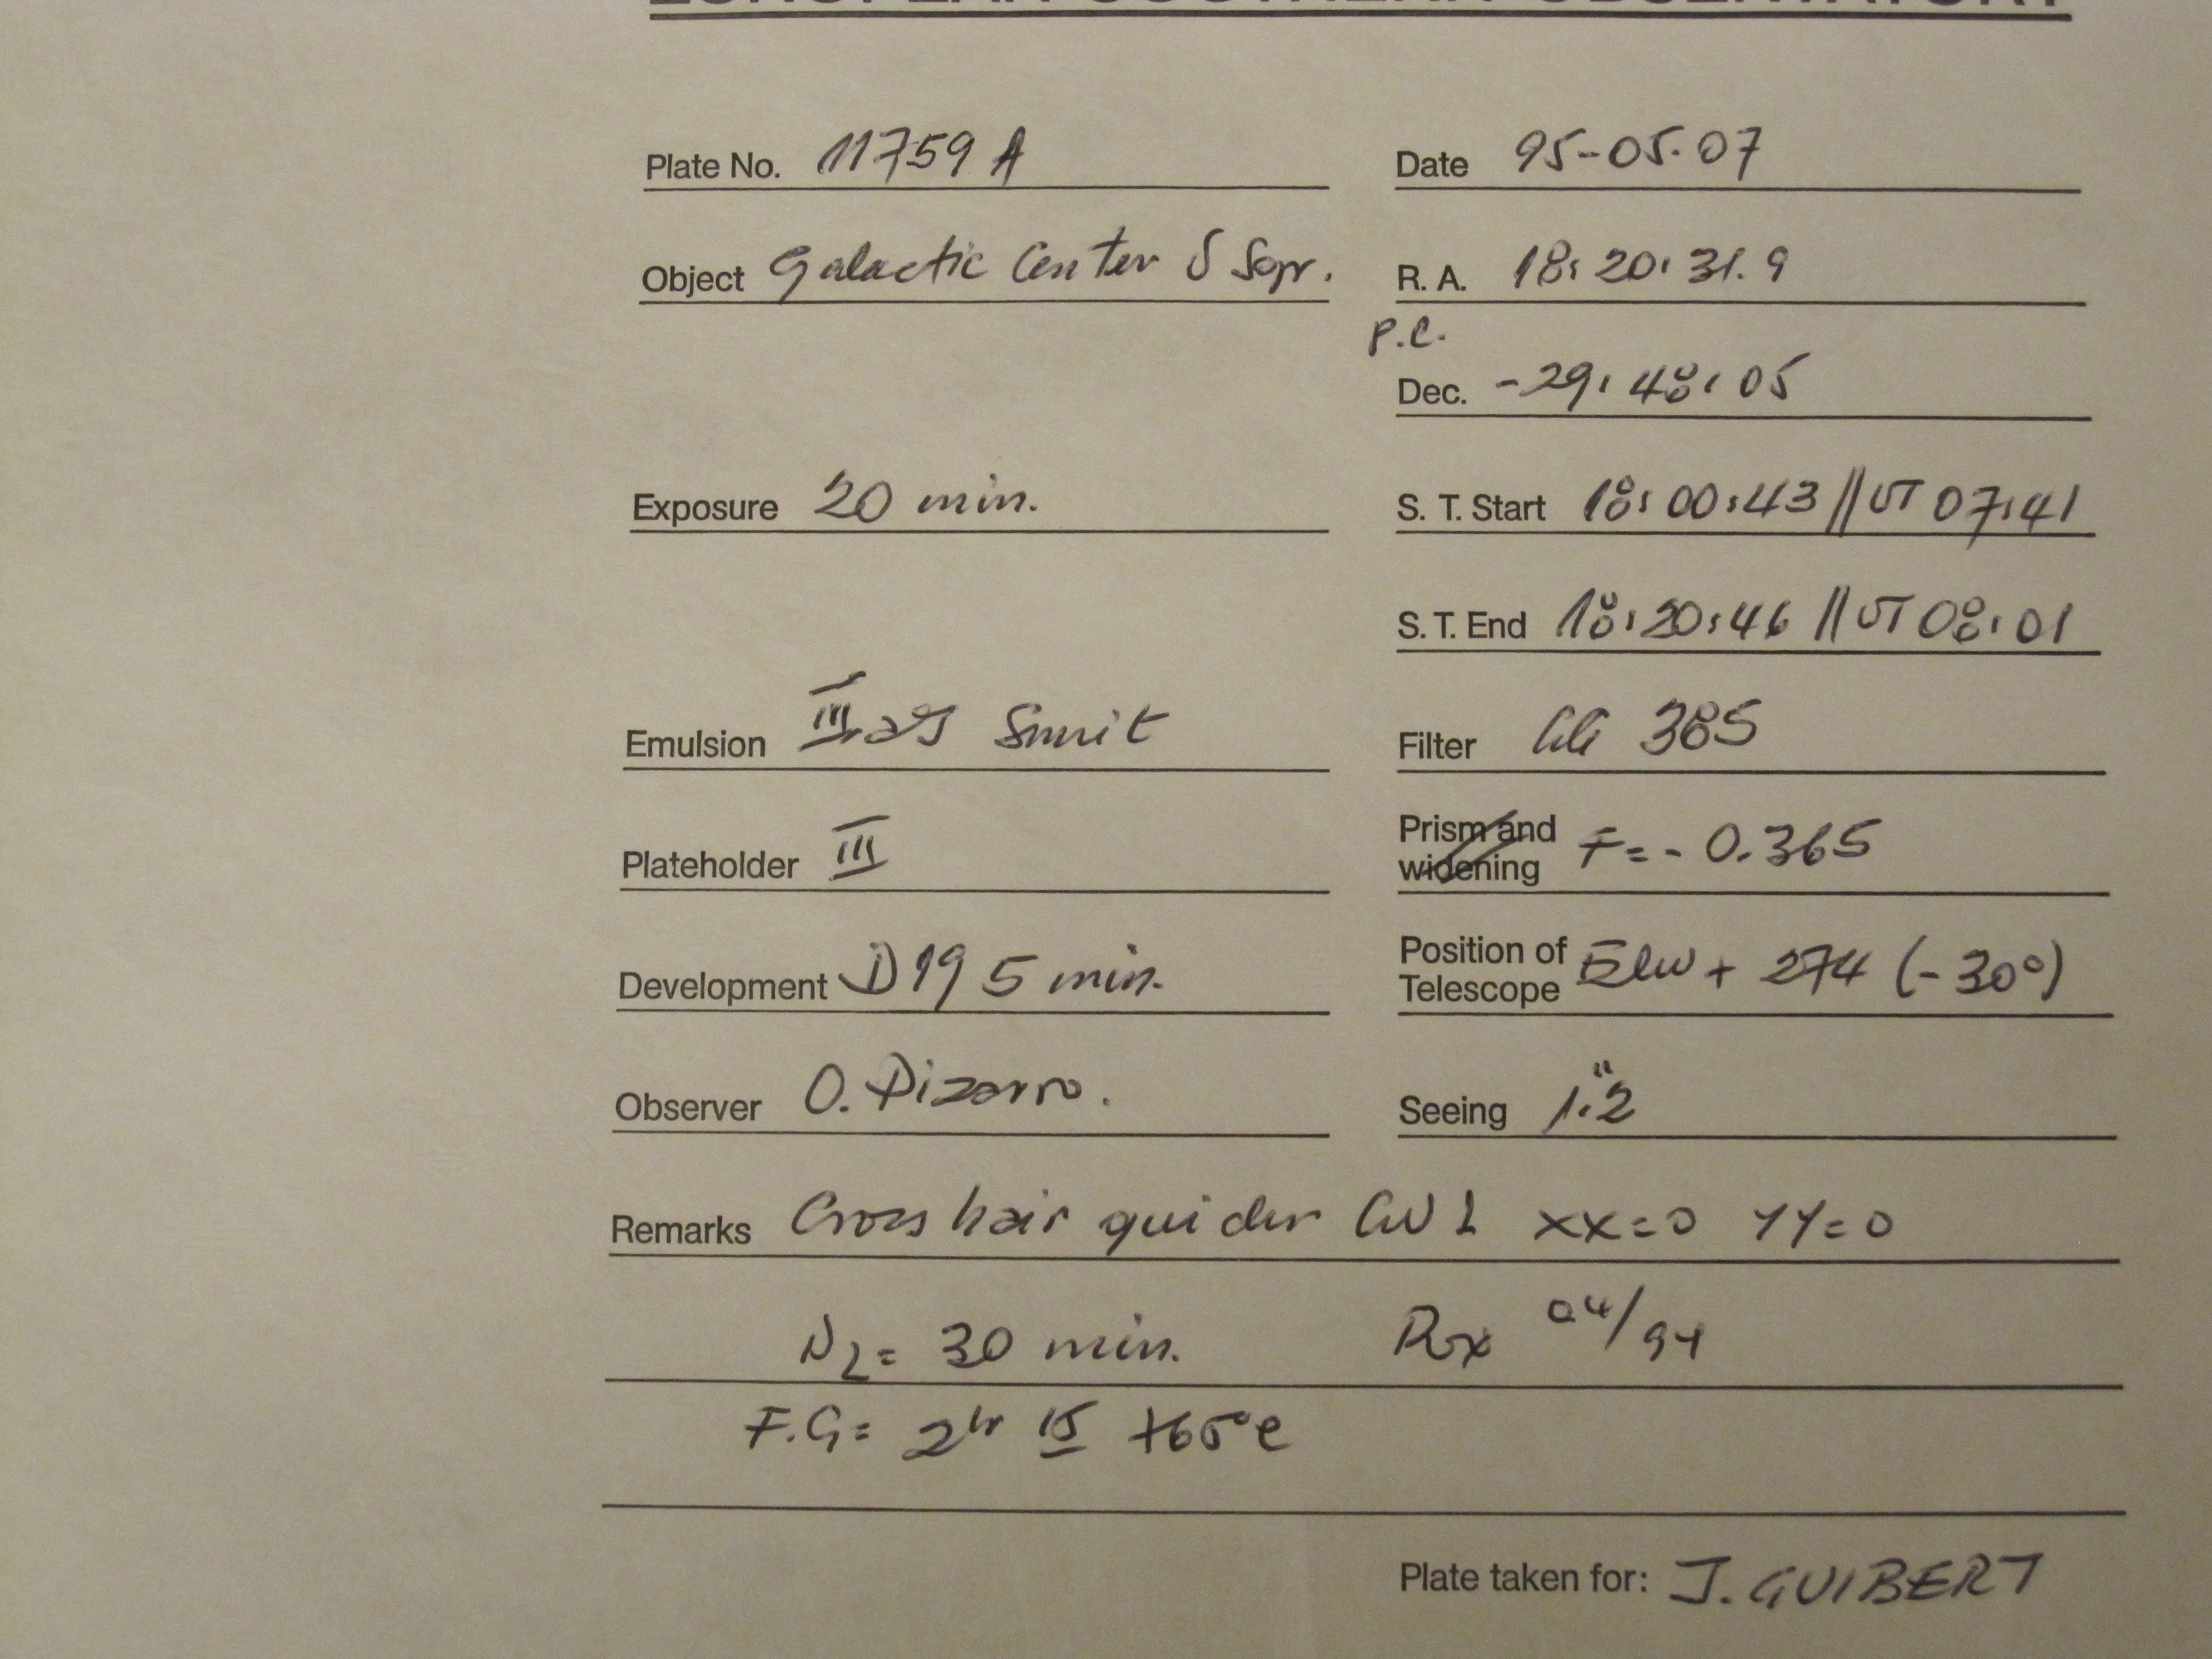 EUROPEAN SOUTHERN OBSERVATORY
Plate No. 11759 A Date 95-05-07
Object Galactic Center S R.A. 18:20:31.9
P.C.
Dec. -29:48:05
Exposure 20 min. S. T. Start 18:00:43 // UT 07:41
S. T. End 18:20:46 // UT 08:01
Emulsion III Filter GG 385
Plateholder III Prism and widening F=-0.365
Development D19 5 min. Position of Telescope + 274 (-30°)
Observer O. Pizarro. Seeing 1."2
Remarks Cross hair guider XX=0 YY=0
N2= 30 min. 04/94
F.G= 2hr +65°C
Plate taken for: J. GUIBERT